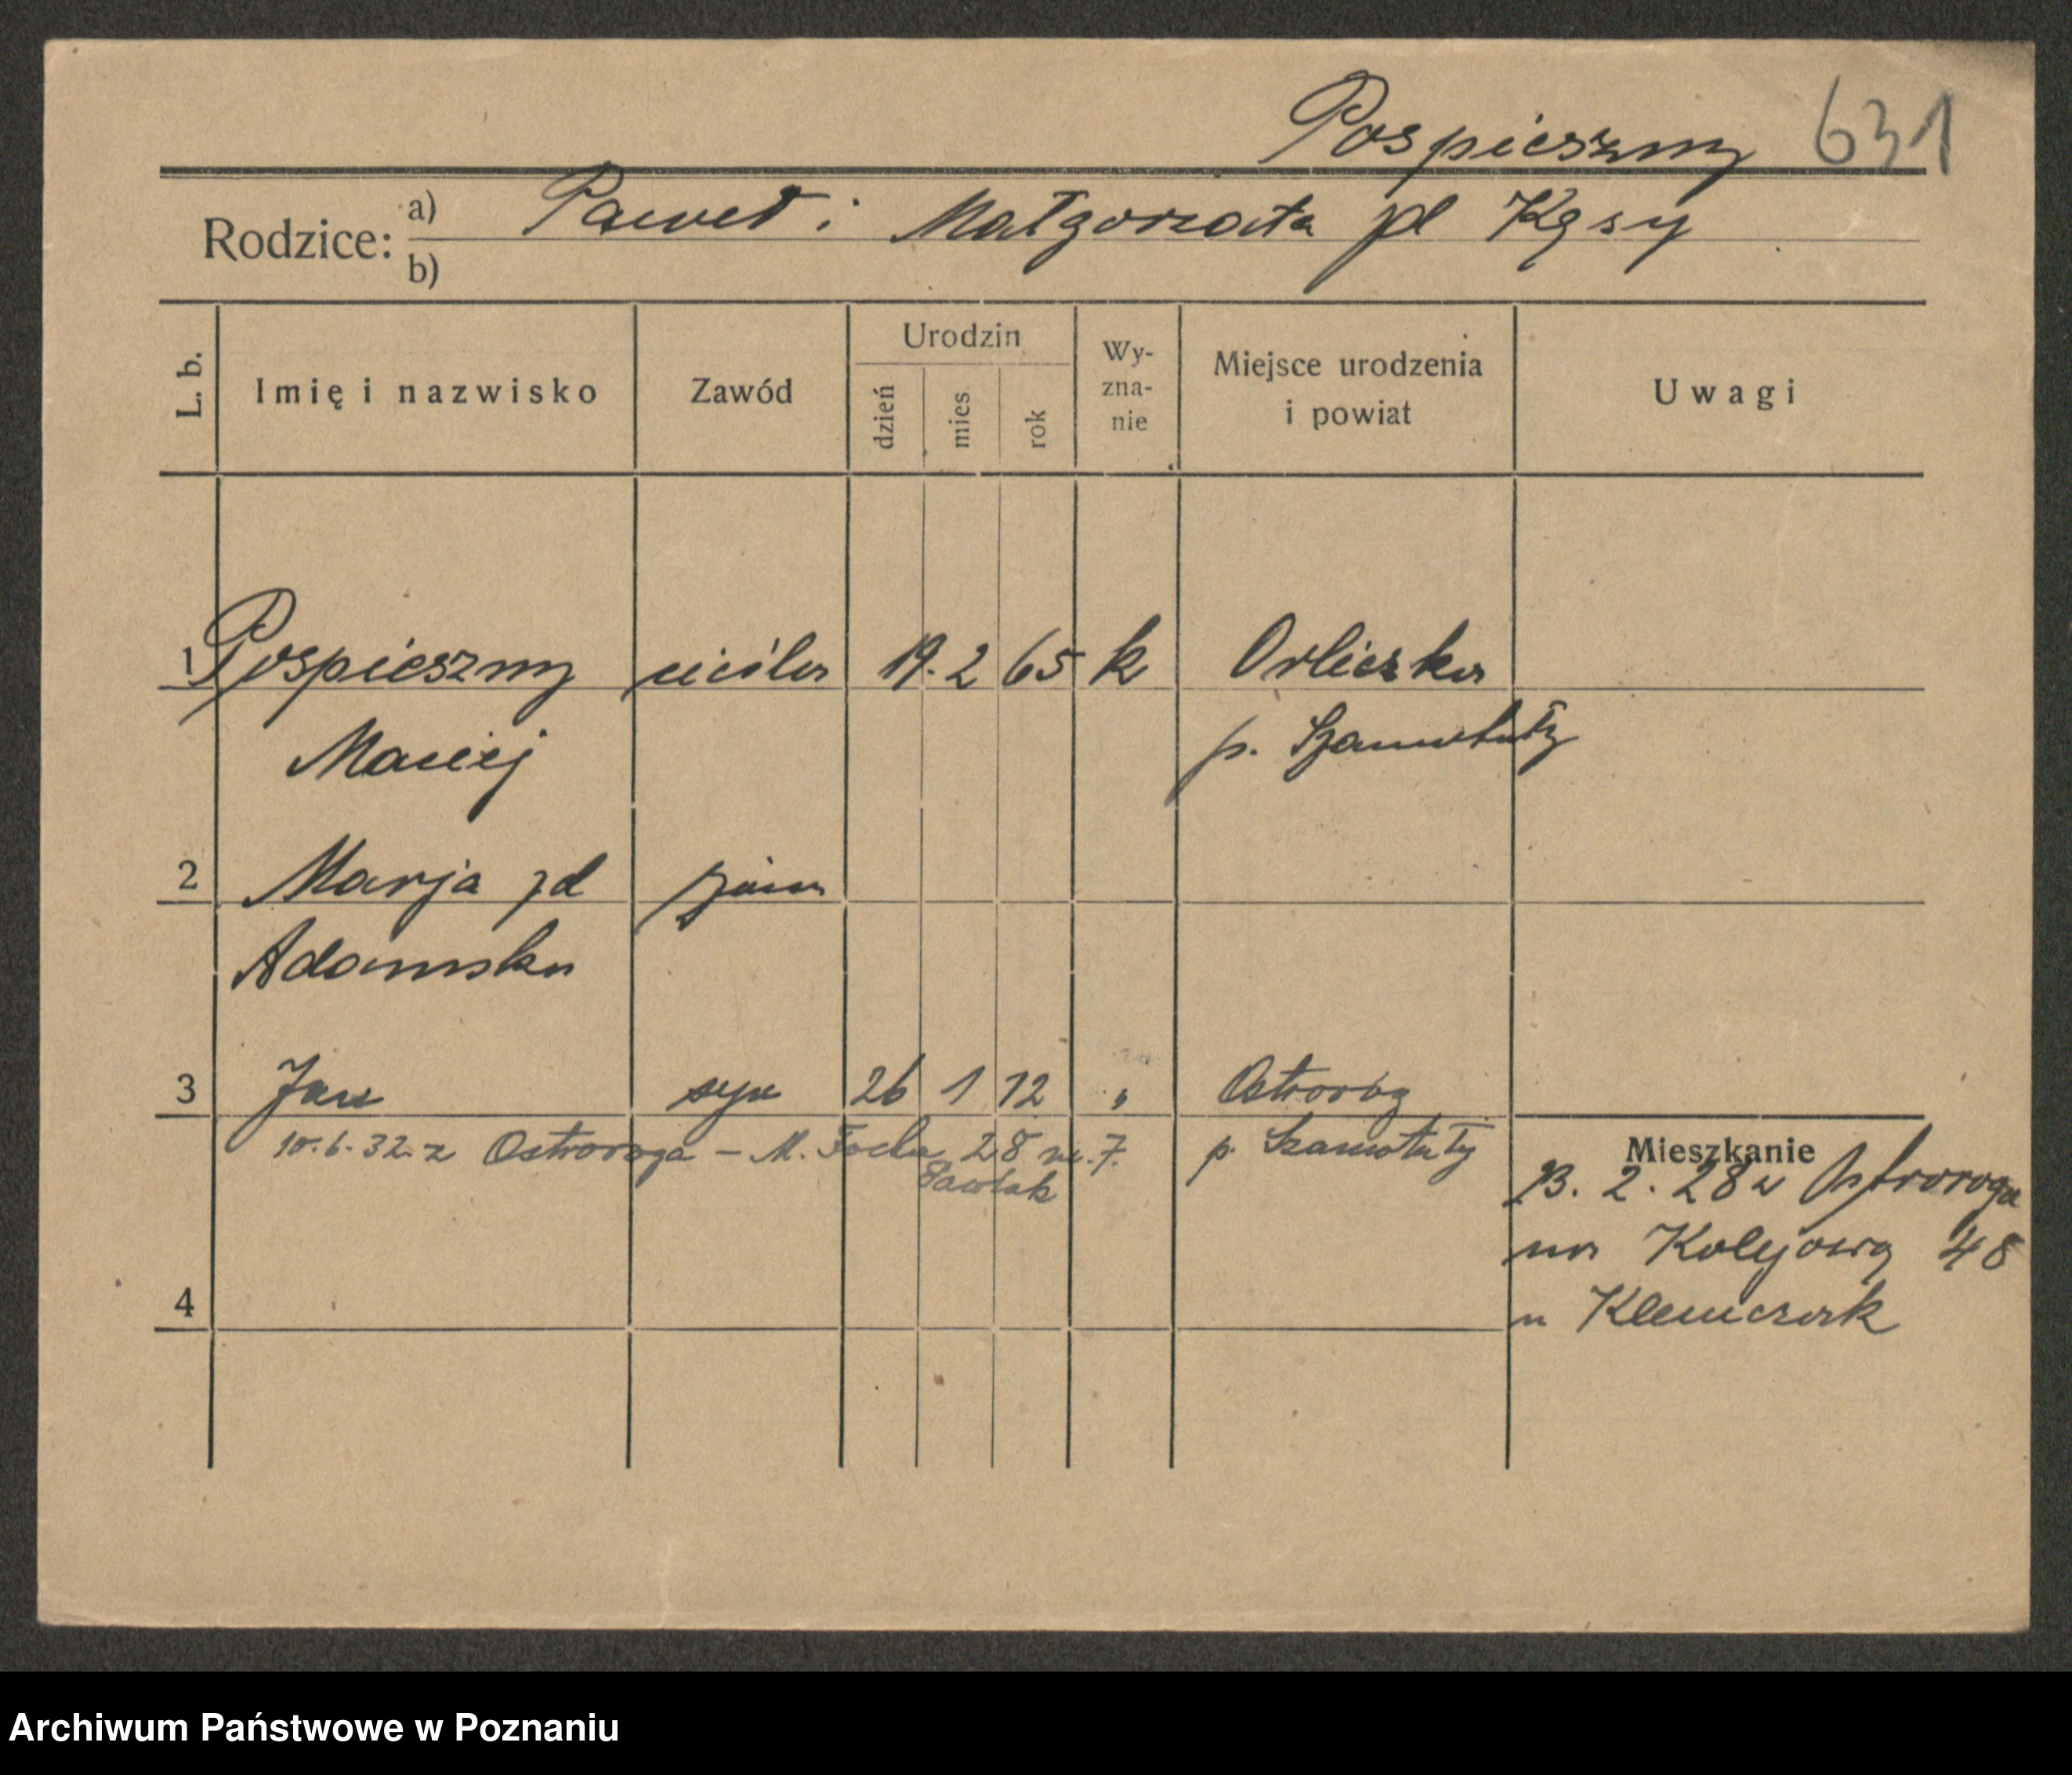 Pospieszny 631
Rodzice: a) Paweł i Małgorzata zd Kęsy
b)
L. b. Imię i nazwisko Zawód Urodzin dzień mies rok Wy-zna-nie Miejsce urodzenia i powiat Uwagi
1 Pospieszny cieśla 19. 2 65 k Orliczko
Maciej p. Szamotuły
2 Marja zd żona
Adamska
3 Jan syn 26 1 12 " Ostroróg
10.6.32 z Ostroroga - M. Focha 28 m. 7. p. Szamotuły
Pawlak
Mieszkanie
13. 2. 28 z Ostroroga
na Kolejową 48
u Klemczak
4
Archiwum Państwowe w Poznaniu